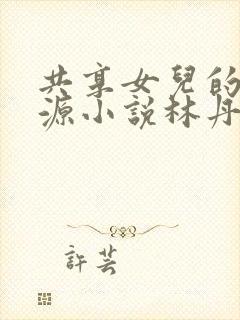 共享女兒的
源小說林丹
許芸